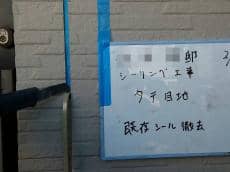 邸
シーリング工事
タテ目地
既存シール撤去